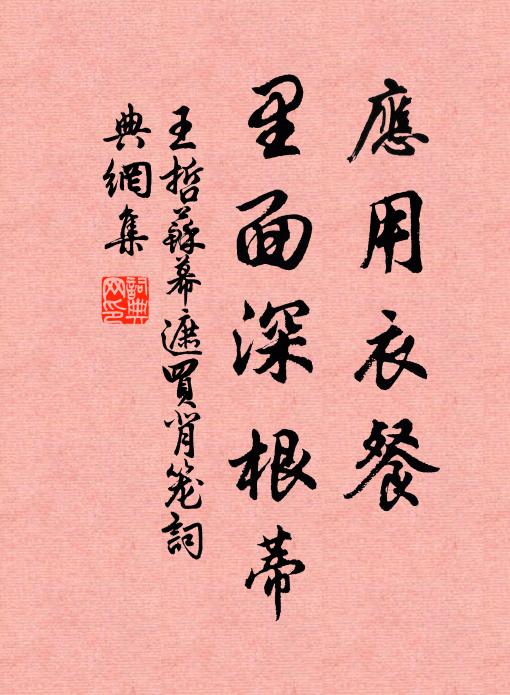 應用衣餐
里面深根蒂
王哲蘇幕遮買背笼詞
典網集
詞典網印